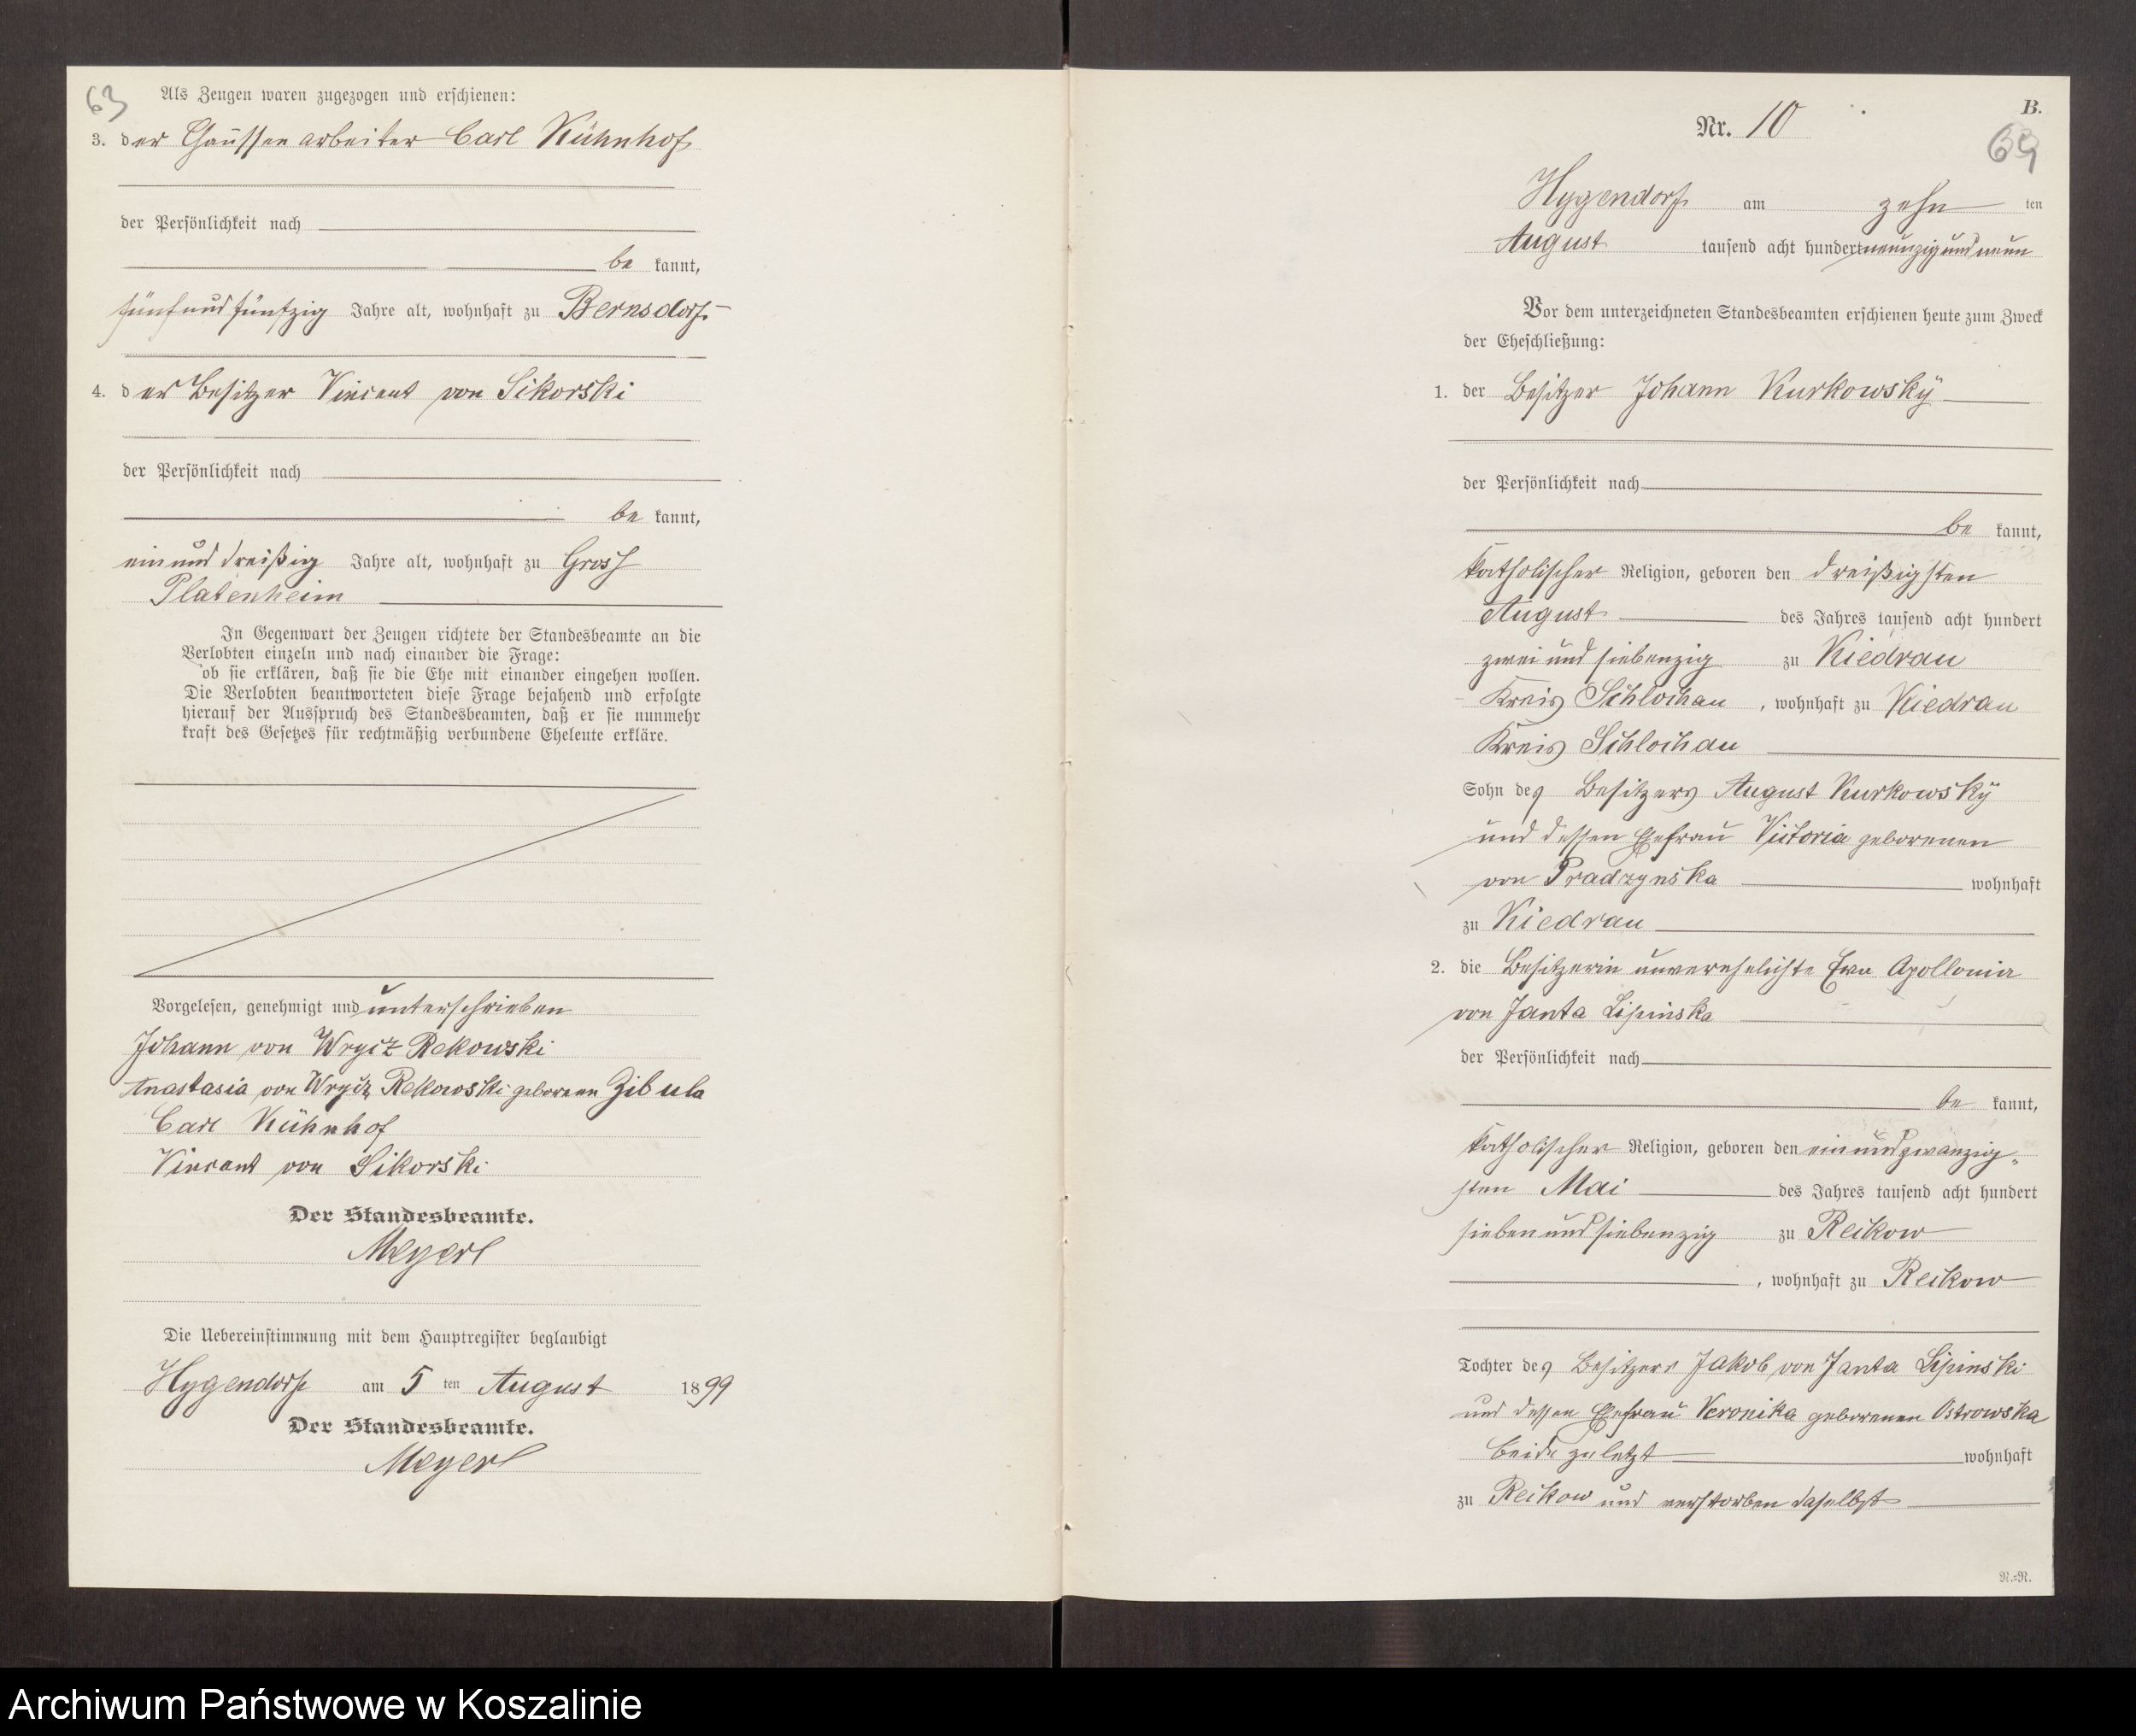 63
Als Zeugen waren zugezogen und erschienen:
3. der Chausseearbeiter Carl Kühnhof
der Persönlichkeit nach
be kannt,
fünfundfünfzig Jahre alt, wohnhaft zu Bernsdorf
4. der Besitzer Vincent von Sikorski
der Persönlichkeit nach
be kannt,
einunddreißig Jahre alt, wohnhaft zu Gross
Platenheim
In Gegenwart der Zeugen richtete der Standesbeamte an die
Verlobten einzeln und nach einander die Frage:
ob sie erklären, daß sie die Ehe mit einander eingehen wollen.
Die Verlobten beantworteten diese Frage bejahend und erfolgte
hierauf der Ausspruch des Standesbeamten, daß er sie nunmehr
kraft des Gesetzes für rechtmäßig verbundene Eheleute erkläre.
Vorgelesen, genehmigt und unterschrieben
Johann von Wrycz Rekowski
Anastasia von Wrycz Rekowski geborene Zibula
Carl Kühnhof
Vincent von Sikorski
Der Standesbeamte.
Meyerl
Die Uebereinstimmung mit dem Hauptregister beglaubigt
Hygendorf am 5 ten August 1899
Der Standesbeamte.
Meyerl
B.
Nr. 10
69
Hygendorf am zehn ten
August tausend acht hundert neunzig und neun
Vor dem unterzeichneten Standesbeamten erschienen heute zum Zweck
der Eheschließung:
1. der Besitzer Johann Kurkowsky
der Persönlichkeit nach
be kannt,
katholischer Religion, geboren den dreißigsten
August des Jahres tausend acht hundert
zwei und siebenzig zu Kiedrau
Kreis Schlochau, wohnhaft zu Kiedrau
Kreis Schlochau
Sohn des Besitzers August Kurkowsky
und dessen Ehefrau Victoria geborenen
von Pradzynska wohnhaft
zu Kiedrau
2. die Besitzerin unverehelichte Eva Apollonia
von Janta Lipinska
der Persönlichkeit nach
be kannt,
katholischer Religion, geboren den einundzwanzig-
sten Mai des Jahres tausend acht hundert
sieben und siebenzig zu Reikow
, wohnhaft zu Reikow
Tochter des Besitzers Jakob von Janta Lipinski
und dessen Ehefrau Veronika geborenen Ostrowska
beide zuletzt wohnhaft
zu Reikow und verstorben daselbst
R.=R.
Archiwum Państwowe w Koszalinie